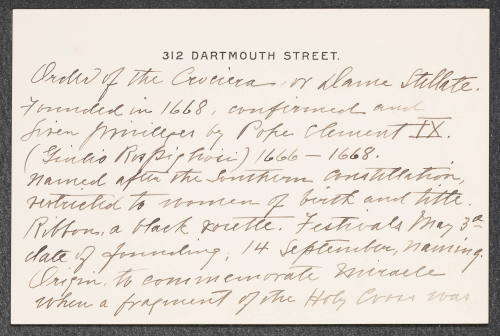 312 DARTMOUTH STREET.
Order of the Crociera, or Dame Stellate.
Founded in 1668, confirmed and
given privileges by Pope Clement IX.
(Giulio Rospigliosi) 1666 – 1668.
Named after the Southern Constellation,
restricted to women of birth and title.
Ribbon, a black rosette. Festivals May 3rd
date of founding, 14 September, naming.
Origin, to commemorate miracle
when a fragment of the Holy Cross was